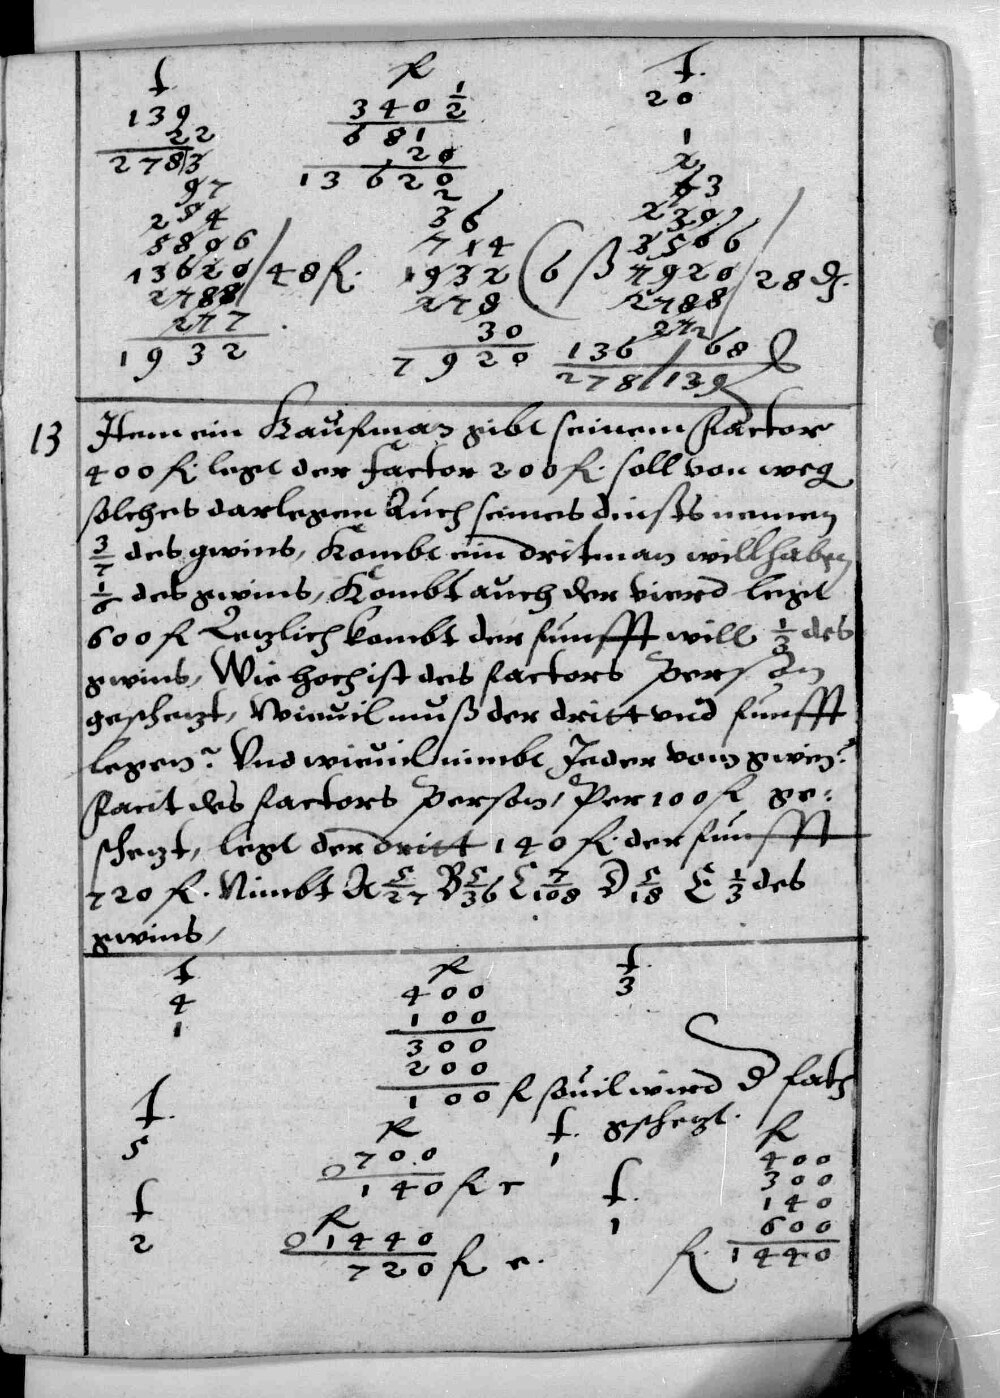 t fl t.
139 340 1/2 20
22 681 1
2783 20 2
97 13620 43
254 2 239
5896 36 3566
13620 / 48 fl. 714 7920 / 28 ₰.
2788 1932 ( 6 ß 2788
277 278 272
1932 30 136 / 68
7920 278 / 139
13 Item ein Kaufman gibt seinem Factor
400 fl. legt der Factor 200 fl. soll von weg
solches darlegen Auch seines dinsts nemen
3/7 des gwins, Kombt ein dritman will haben
1/6 des gwins, Kombt auch der vierd legt
600 fl Letzlich kombt der funfft will 1/3 des
gwins, Wie hoch ist des factors Person
geschetzt, Wieuil muß der dritt vnd funfft
legen? Vnd wieuil nimbt Jeder vom gwin?
Facit des factors Person, Per 100 fl ge:
schetzt, legt der dritt 140 fl. der funfft
720 fl. Nimbt A 5/27 B 5/36 C 7/108 D 5/18 E 1/3 des
gwins,
t fl t.
4 400 3
1 100
300
200
100 fl souil wird d factor
geschetzt.
t. fl t. fl
5 700 1 400
0 140 fl c 300
t fl t. 140
2 0 1440 1 600
720 fl e. fl. 1440